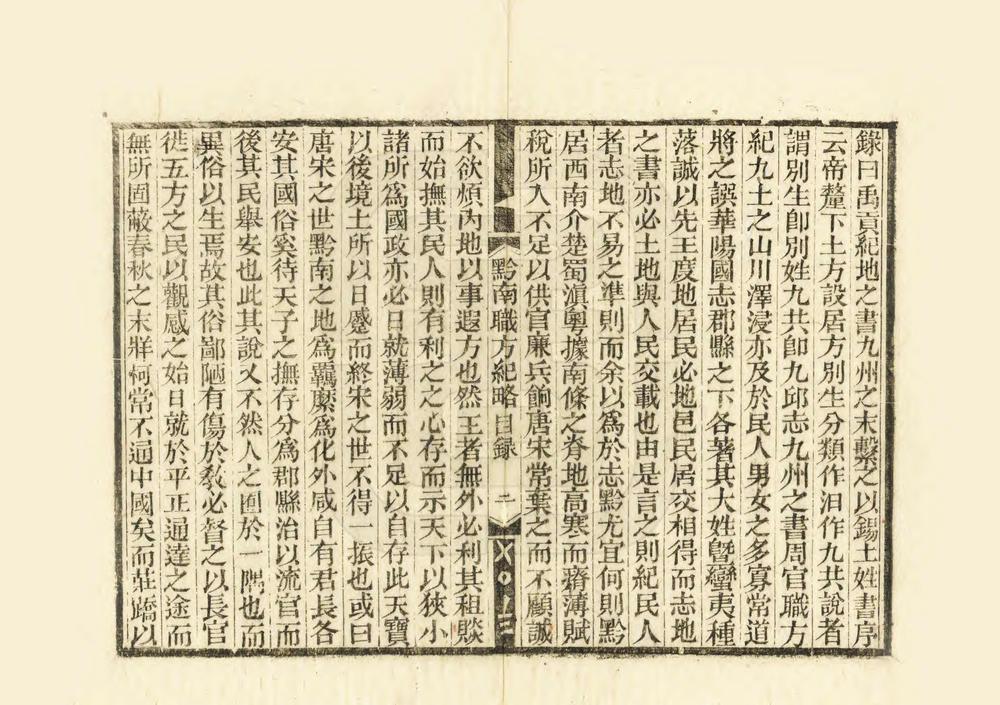 錄曰禹貢紀地之書九州之末繫之以錫土姓書序
云帝釐下土方設居方別生分類作汨作九共說者
謂別生卽別姓九共卽九邱志九州之書周官職方
紀九土之山川澤浸亦及於民人男女之多寡常道
將之譔華陽國志郡縣之下各著其大姓曁蠻夷種
落誠以先王度地居民必地邑民居交相得而志地
之書亦必土地與人民交載也由是言之則紀民人
者志地不易之準則而余以爲於志黔尤宜何則黔
居西南介楚蜀滇粵據南條之脊地高寒而瘠薄賦
稅所入不足以供官廉兵餉唐宋常棄之而不顧誠
黔南職方紀略目錄 二
不欲煩內地以事遐方也然王者無外必利其租賧
而始撫其民人則有利之之心存而示天下以狹小
諸所爲國政亦必日就薄弱而不足以自存此天寶
以後境土所以日蹙而終宋之世不得一振也或曰
唐宋之世黔南之地爲羈縻爲化外咸自有君長各
安其國俗奚待天子之撫存分爲郡縣治以流官而
後其民舉安也此其說又不然人之囿於一隅也而
異俗以生焉故其俗鄙陋有傷於敎必督之以長官
徙五方之民以觀感之始日就於平正通達之途而
無所固蔽春秋之末牂柯常不通中國矣而莊蹻以